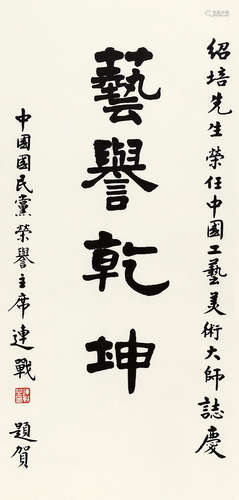 紹培先生榮任中國工藝美術大師誌慶
藝譽乾坤
中國國民黨榮譽主席連戰
題賀